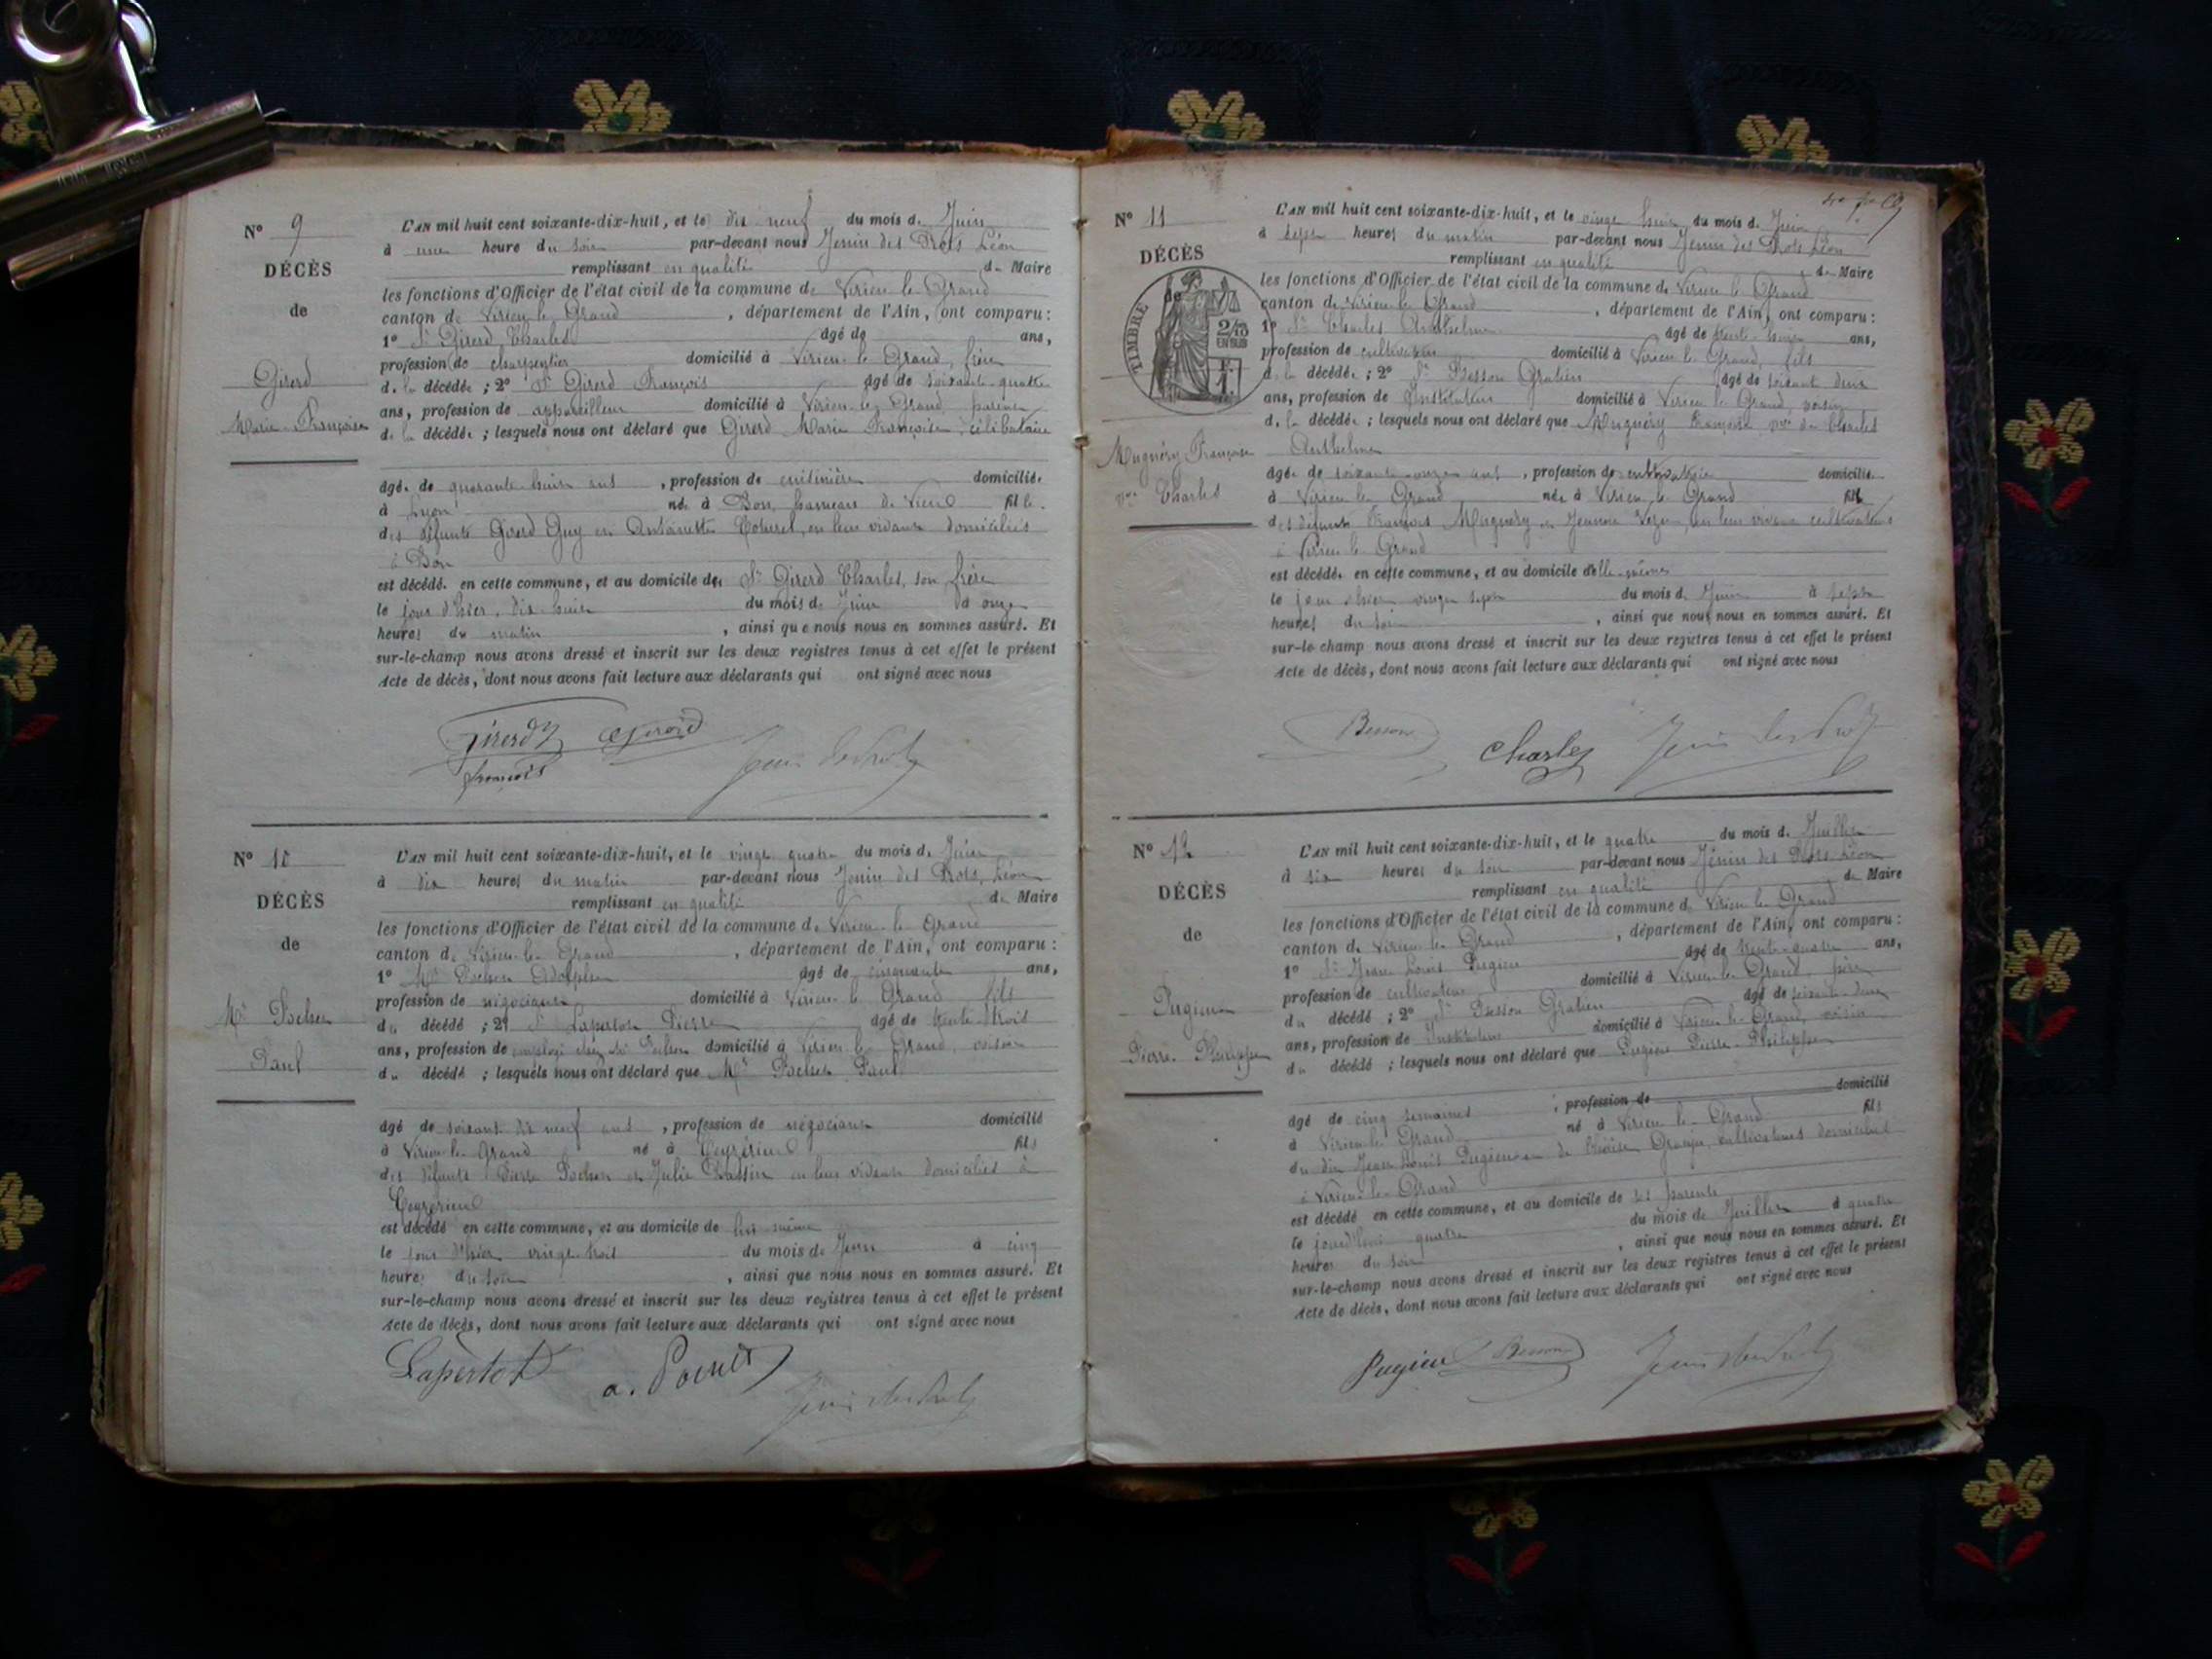 N° 9
DÉCÈS
de
Girerd
Marie Françoise
L'AN mil huit cent soixante-dix-huit, et le dix neuf du mois de Juin
à une heure du soir par-devant nous Jenin des Prots Léon
remplissant en qualité de Maire
les fonctions d'Officier de l'état civil de la commune de Virieu le Grand
canton de Virieu le Grand, département de l'Ain, ont comparu :
1° Sr Girerd Charles âgé de ans,
profession de charpentier domicilié à Virieu le Grand, frère
de la décédée ; 2° Sr Girerd François âgé de soixante quatre
ans, profession de appareilleur domicilié à Virieu le Grand, parent
de la décédée ; lesquels nous ont déclaré que Girerd Marie Françoise, célibataire
âgée de quarante huit ans, profession de cuisinière domiciliée
à Lyon née à Don, hameau de Vieu fille
des défunts Girerd Guy et Antoinette, en leur vivant domiciliés
à Don
est décédée en cette commune, et au domicile de Sr Girerd Charles, son frère
le jour d'hier, dix huit du mois de Juin à onze
heures du matin, ainsi que nous nous en sommes assuré. Et
sur-le-champ nous avons dressé et inscrit sur les deux registres tenus à cet effet le présent
Acte de décès, dont nous avons fait lecture aux déclarants qui ont signé avec nous
Girerd
françois
N° 10
DÉCÈS
de
Mr Pochet
Paul
L'AN mil huit cent soixante-dix-huit, et le vingt quatre du mois de Juin
à dix heures du matin par-devant nous Jenin des Prots, Léon
remplissant en qualité de Maire
les fonctions d'Officier de l'état civil de la commune de Virieu le Grand
canton de Virieu le Grand, département de l'Ain, ont comparu :
1° Mr Pochet Adolphe âgé de cinquante ans,
profession de négociant domicilié à Virieu le Grand fils
du décédé ; 2° Sr Lapertot Pierre âgé de trente trois
ans, profession de employé chez Mr Pochet domicilié à Virieu le Grand, voisin
du décédé ; lesquels nous ont déclaré que Mr Pochet Paul
âgé de soixante dix neuf ans, profession de négociant domicilié
à Virieu le Grand né à Ceyzérieu fils
des défunts Pierre Pochet et Julie en leur vivant domiciliés à
Ceyzérieu
est décédé en cette commune, et au domicile de lui même
le jour d'hier vingt trois du mois de Juin à cinq
heures du soir, ainsi que nous nous en sommes assuré. Et
sur-le-champ nous avons dressé et inscrit sur les deux registres tenus à cet effet le présent
Acte de décès, dont nous avons fait lecture aux déclarants qui ont signé avec nous
Lapertot a. Pochet
N° 11
DÉCÈS
de
TIMBRE
EN SUS
Muguéry Françoise
vve Charles
L'AN mil huit cent soixante-dix-huit, et le vingt huit du mois de Juin
à sept heures du matin par-devant nous Jenin des Prots Léon
remplissant en qualité de Maire
les fonctions d'Officier de l'état civil de la commune de Virieu le Grand
canton de Virieu le Grand, département de l'Ain, ont comparu :
1° Sr Charles Anthelme âgé de trente huit ans,
profession de cultivateur domicilié à Virieu le Grand, fils
de la décédée ; 2° Sr Besson Gratien âgé de soixante deux
ans, profession de Instituteur domicilié à Virieu le Grand, voisin
de la décédée ; lesquels nous ont déclaré que Muguéry Françoise, vve de Charles
Anthelme
âgée de soixante onze ans, profession de cultivatrice domiciliée
à Virieu le Grand née à Virieu le Grand fille
des défunts François Muguéry et Jeanne, en leur vivant cultivateurs
à Virieu le Grand
est décédée en cette commune, et au domicile d'elle-même
le jour d'hier vingt sept du mois de Juin à sept
heures du soir, ainsi que nous nous en sommes assuré. Et
sur-le-champ nous avons dressé et inscrit sur les deux registres tenus à cet effet le présent
Acte de décès, dont nous avons fait lecture aux déclarants qui ont signé avec nous
Besson Charles
N° 12
DÉCÈS
de
Pugieux
Pierre Philippe
L'AN mil huit cent soixante-dix-huit, et le quatre du mois de Juillet
à six heures du soir par-devant nous Jenin des Prots Léon
remplissant en qualité de Maire
les fonctions d'Officier de l'état civil de la commune de Virieu le Grand
canton de Virieu le Grand, département de l'Ain, ont comparu :
1° Sr Jean Louis Pugieux âgé de trente quatre ans,
profession de cultivateur domicilié à Virieu le Grand, père
du décédé ; 2° Sr Besson Gratien âgé de soixante deux
ans, profession de Instituteur domicilié à Virieu le Grand, voisin
du décédé ; lesquels nous ont déclaré que Pugieux Pierre Philippe
âgé de cinq semaines, profession de domicilié
à Virieu le Grand né à Virieu le Grand fils
du dit Jean Louis Pugieux et de, cultivateurs domiciliés
à Virieu le Grand
est décédé en cette commune, et au domicile de ses parents
le jourd'hui quatre du mois de Juillet à quatre
heures du soir, ainsi que nous nous en sommes assuré. Et
sur-le-champ nous avons dressé et inscrit sur les deux registres tenus à cet effet le présent
Acte de décès, dont nous avons fait lecture aux déclarants qui ont signé avec nous
Pugieux Besson